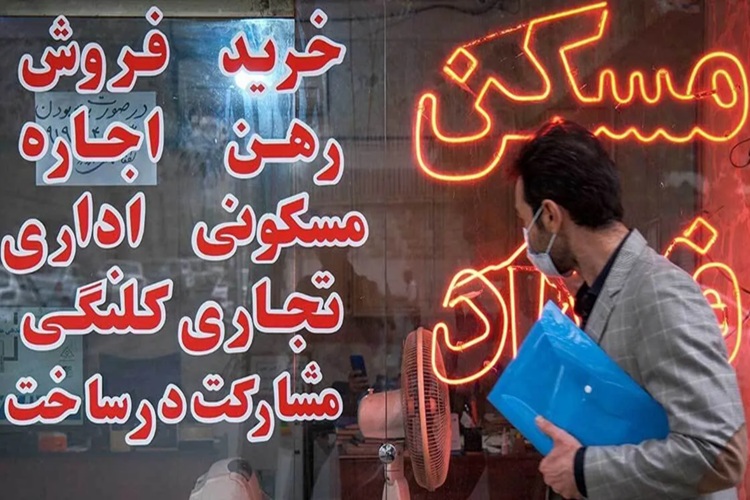 خرید فروش
رهن اجاره
مسکونی اداری
تجاری کلنگی
مشارکت در ساخت
مسکن
در صورت نبودن